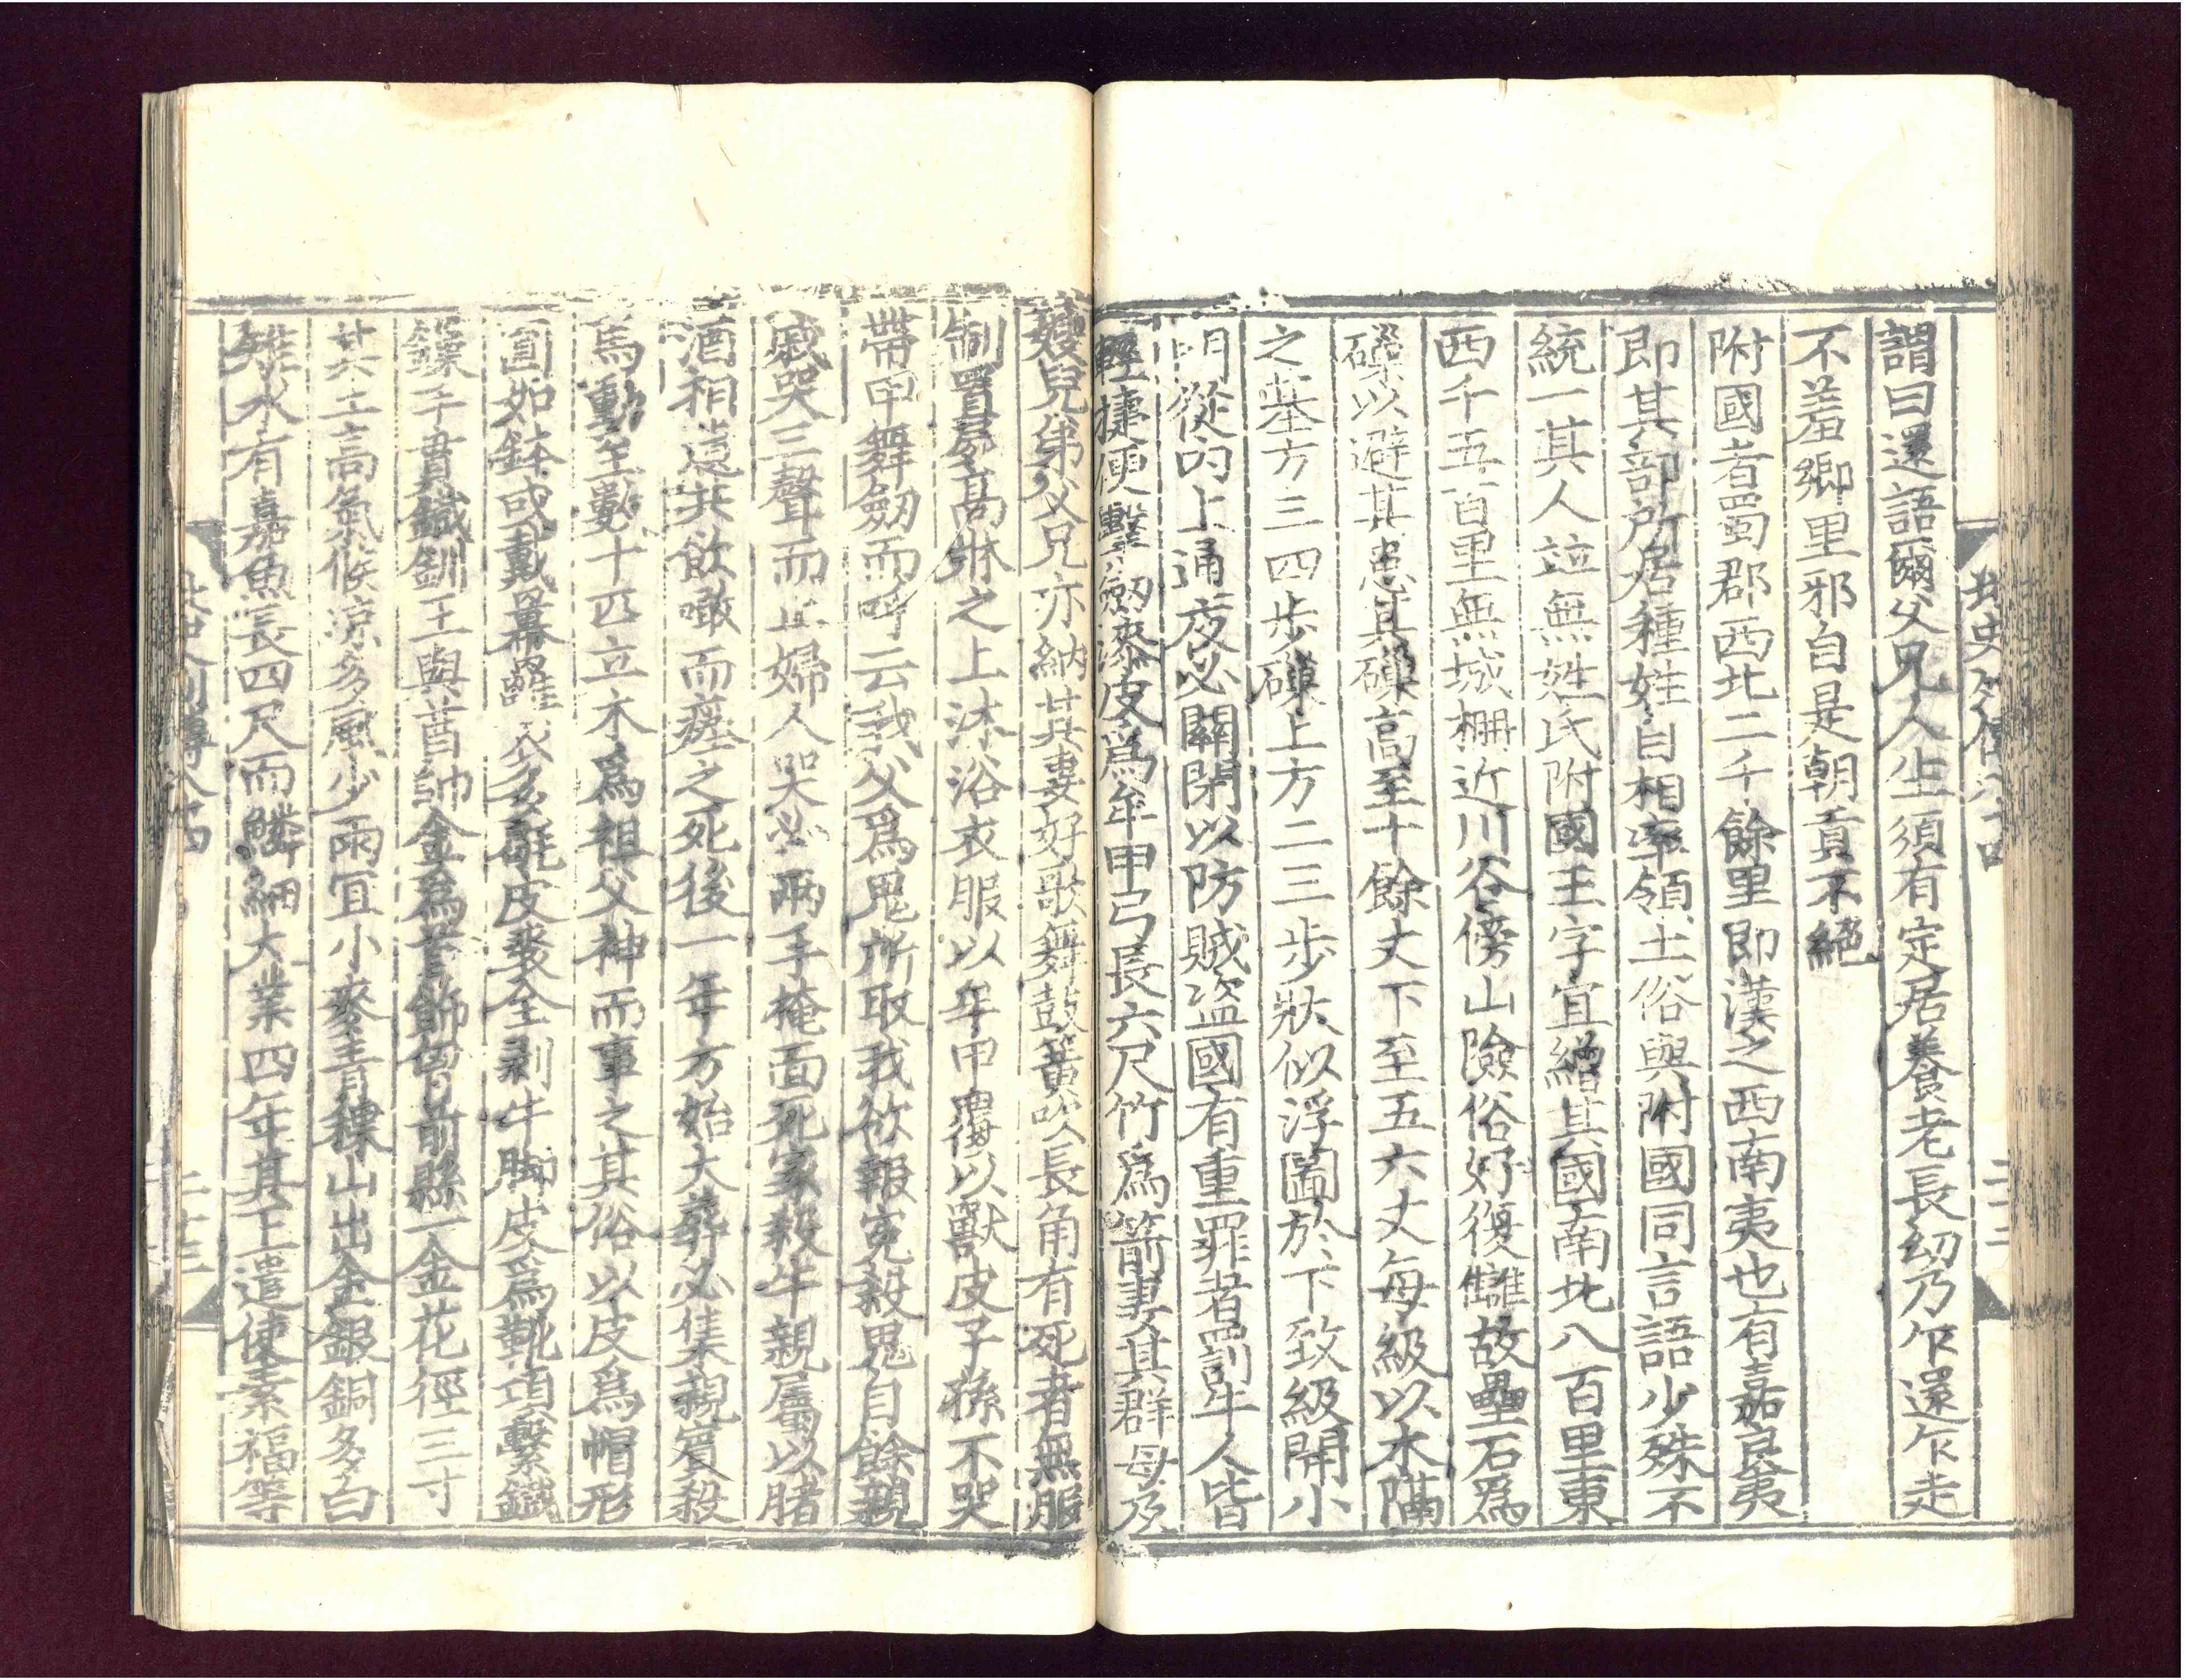 謂曰還語爾父兄人生須有定居養老長幼乃乍還乍走
不羞鄉里邪自是朝貢不絕
附國者蜀郡西北二千餘里即漢之西南夷也有嘉良夷
即其部所居種姓自相率領土俗與附國同言語少殊不
統一其人竝無姓氏附國王字宜繒其國南北八百里東
西千五百里無城柵近川谷傍山險俗好復讎故壘石爲
磲以避其患其磲高至十餘丈下至五六丈每級以木隔
之基方三四步磲上方二三步狀似浮圖於下致級開小
門從內上通夜必關閉以防賊盜國有重罪者罰牛人皆
輕捷便擊劒漆皮爲牟甲弓長六尺竹爲箭妻其群母及
嫂兒弟父兄亦納其妻好歌舞鼓簧吹長角有死者無服
制置屍高牀之上沐浴衣服以牟甲覆以獸皮子孫不哭
帶甲舞劒而呼云我父爲鬼所取我欲報寃殺鬼自餘親
戚哭三聲而止婦人哭必兩手掩面死家殺牛親屬以豬
酒相遺共飲噉而瘞之死後一年方始大葬必集親賓殺
馬動至數十匹立木爲祖父神而事之其俗以皮爲帽形
圓如鉢或戴羃䍦衣多毼皮裘全剥牛脚皮爲靴項繫鐵
鏁手貫鐵釧王與酋帥金爲首飾胷前懸一金花徑三寸
其土高氣候涼多風少雨宜小麥青稞山出金銀銅多白
雉水有嘉魚長四尺而鱗細大業四年其王遣使素福等
北史列傳八十四
二十三